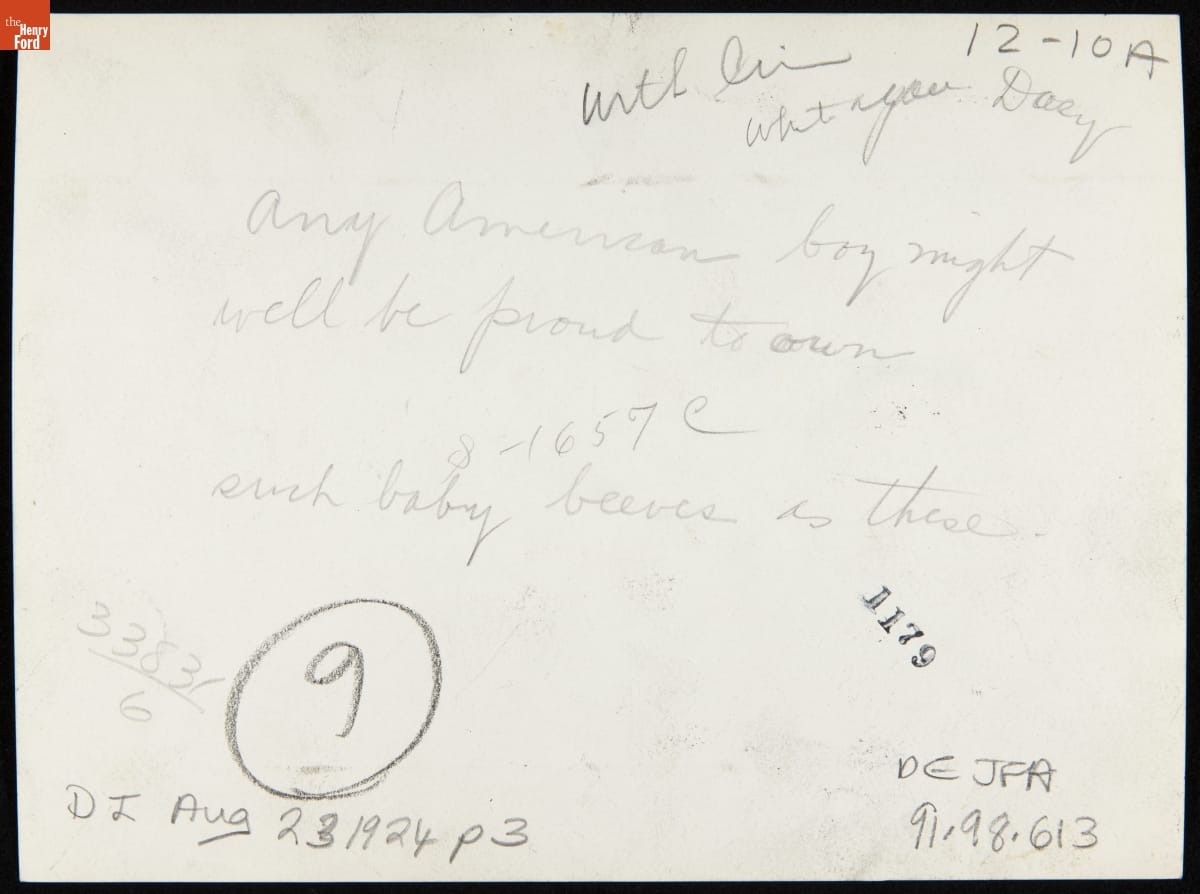 the
Henry
Ford
12-10A
with
what
any American boy might
well be proud to own
8-1657 C
such baby beeves as these.
3383
6
9
1179
DI Aug 23 1924 p3
DE JFA
91.98.613